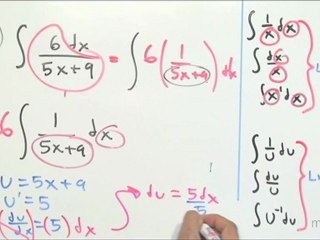 ∫ 6 dx / 5x+9 = ∫ 6 ( 1 / 5x+9 ) dx
6 ∫ 1 / 5x+9 dx
U = 5x+9
U' = 5
du/dx = (5) dx
du = 5dx / 5
∫ 1/x dx
∫ dx/x
∫ x⁻¹ dx
∫ 1/U du
∫ du/U
∫ U⁻¹ du